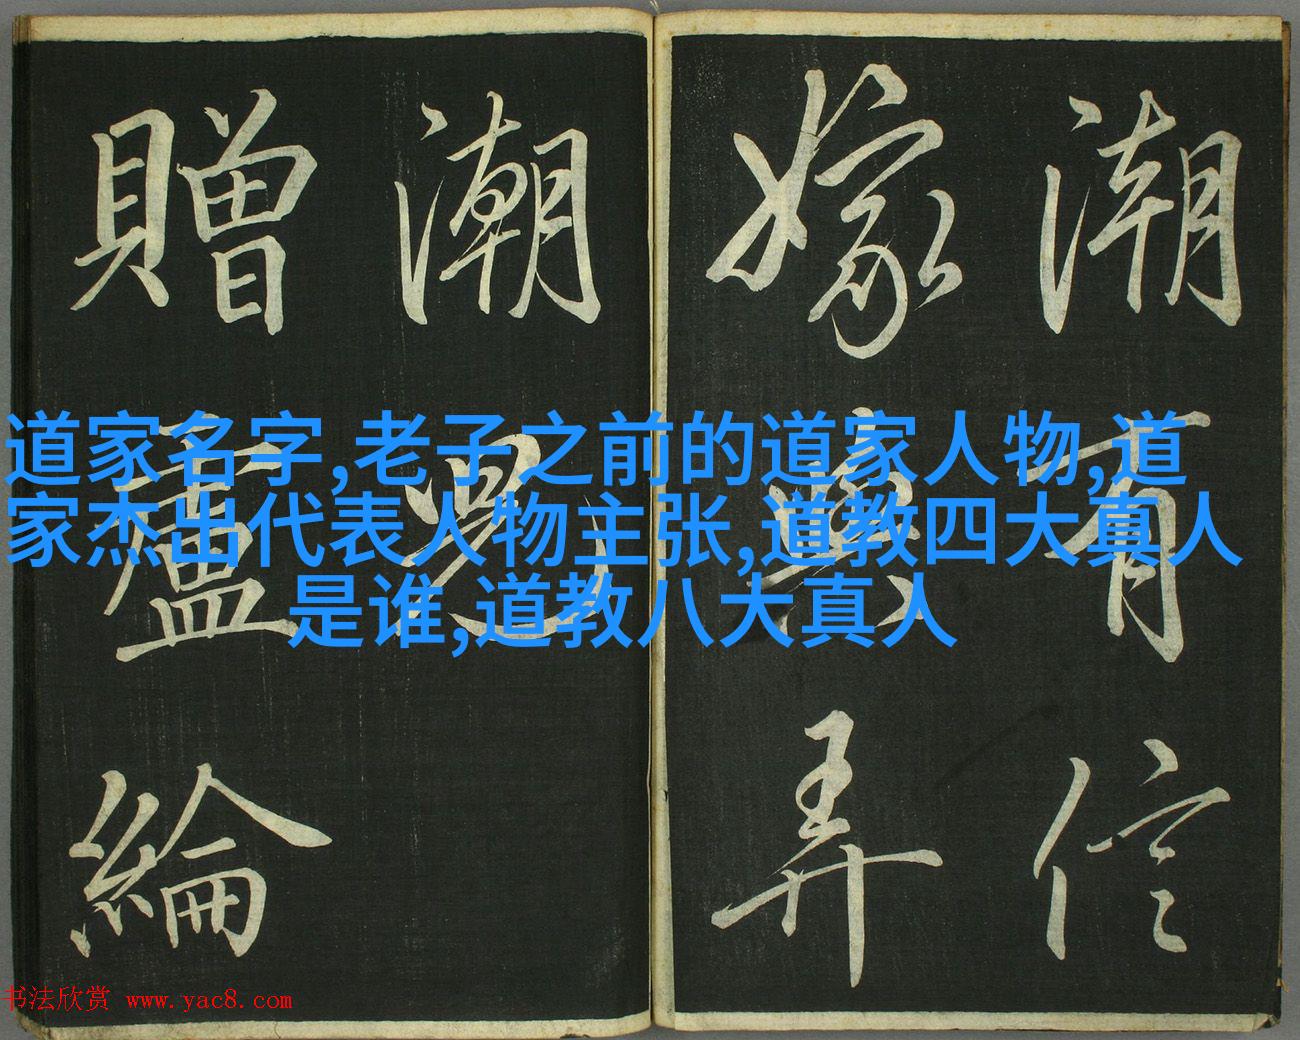 潮有信
嫁與弄
潮兒
贈盧綸
道家名字,老子之前的道家人物,道
家杰出代表人物主张,道教四大真人
是谁,道教八大真人
书法欣赏 www.yac8.com